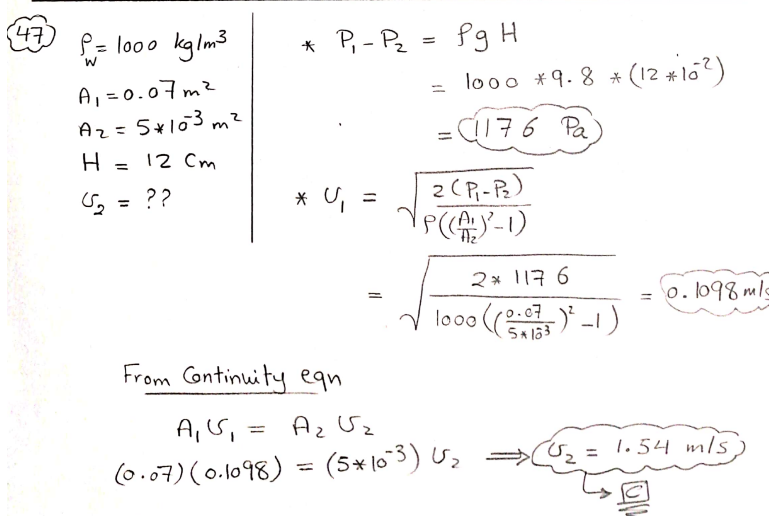 47
ρw = 1000 kg/m³
A₁ = 0.07 m²
A₂ = 5*10⁻³ m²
H = 12 Cm
υ₂ = ??
* P₁ - P₂ = ρg H
= 1000 *9.8 *(12 *10⁻²)
= 1176 Pa
* υ₁ = √(2(P₁-P₂) / ρ((A₁/A₂)²-1))
= √(2* 1176 / 1000((0.07/5*10⁻³)² -1)) = 0.1098 m/s
From Continuity eqn
A₁ υ₁ = A₂ υ₂
(0.07)(0.1098) = (5*10⁻³) υ₂ ⟹ υ₂ = 1.54 m/s
↳ C